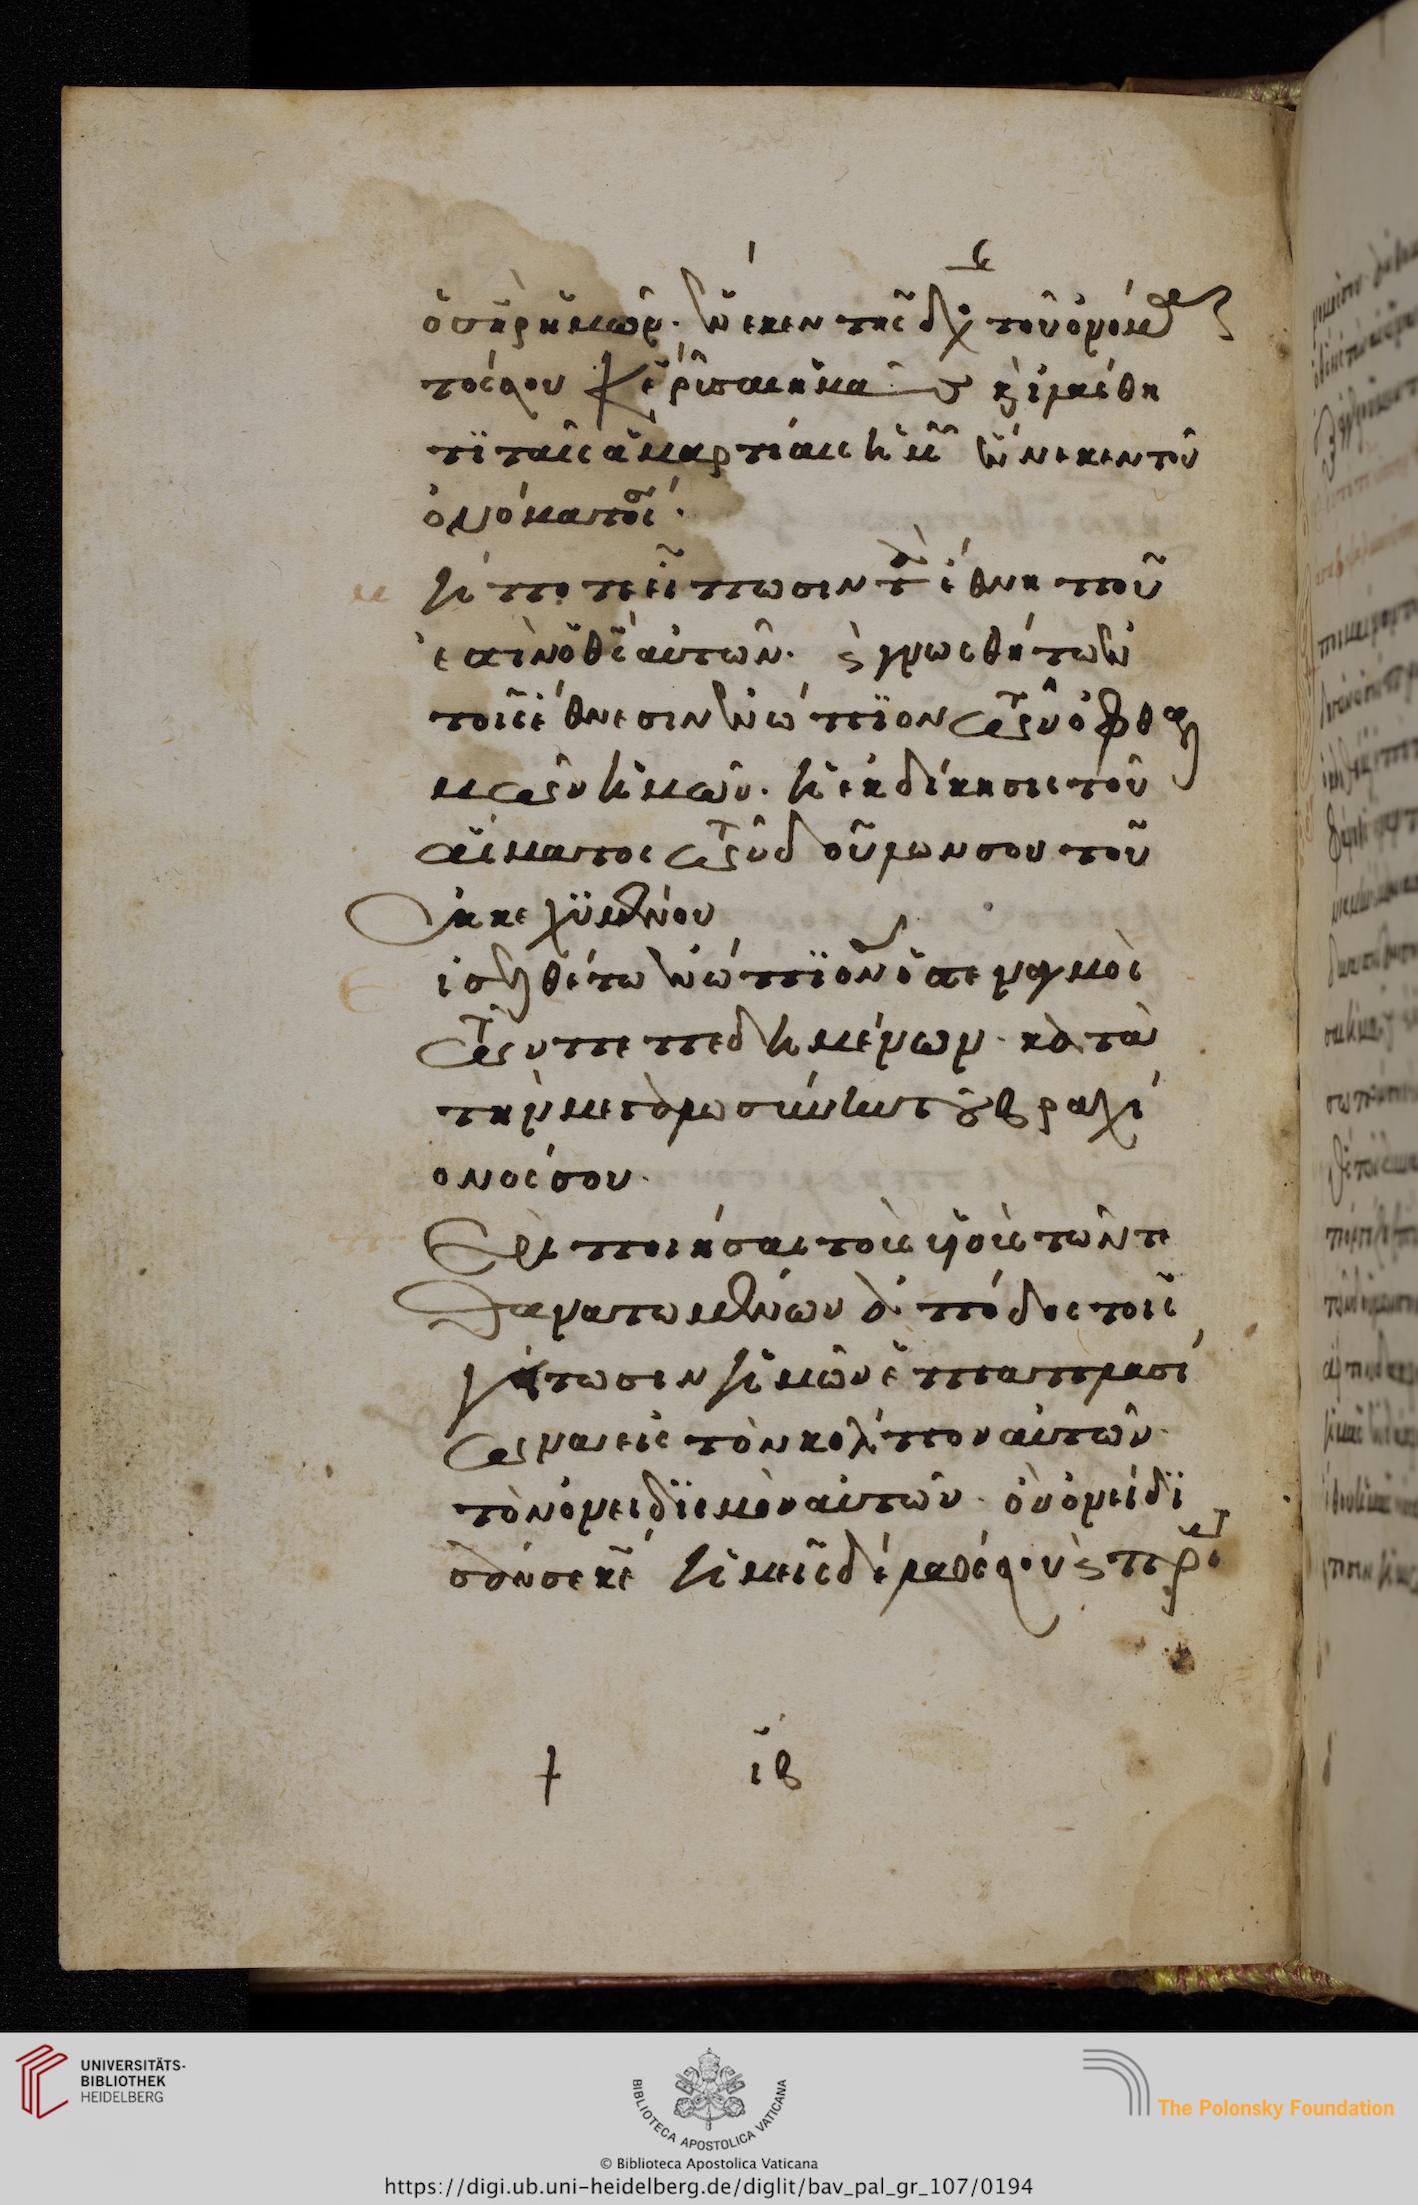 ὁ σ̅η̅ρ ἡμῶν· ἕνεκεν τῆς δόξ τοῦ ὀνόμα
τός σου κ̅ε ῥῦσαι ἡμᾶς κ(αὶ) ἱλάσθη
τϊ ταῖς ἁμαρτίαις ἡμῶν ἕνεκεν τοῦ
ὀνόματός σ·
ή ποτε εἴπωσιν τὰ ἔθνη ποῦ
ἐστὶν ὁ θ̅ς αὐτῶν· κ(αὶ) γνωσθήτω ἐν
τοῖς ἔθνεσιν ἐνώπϊον τῶν ὀφθαλ
μῶν ἡμῶν· ἡ ἐκδίκησις τοῦ
αἵματος τῶν δούλων σου τοῦ
ἐκκεχϋμένου
ισελθέτω ἐνώπϊόν σου ὁ στεναγμὸς
τῶν πεπεδημένων· κατὰ
τὴν μεγαλωσύνην τοῦ βραχί
ονός σου·
ερι ποιήσαι τοὺς υἱοὺς τῶν τε
θανατωμένων ἀπόδος τοῖς
γείτωσιν ἡμῶν ἑπταπλασί
ωνα εἰς τὸν κόλπον αὐτῶν·
τὸν ὀνειδϊσμὸν αὐτῶν· ὃν ὀνείδϊ
σάν σε κ̅ε ἡμεῖς δέ λαός σου κ(αὶ) πρό
ιβ
UNIVERSITÄTS-
BIBLIOTHEK
HEIDELBERG
BIBLIOTECA APOSTOLICA VATICANA
The Polonsky Foundation
© Biblioteca Apostolica Vaticana
https://digi.ub.uni-heidelberg.de/diglit/bav_pal_gr_107/0194